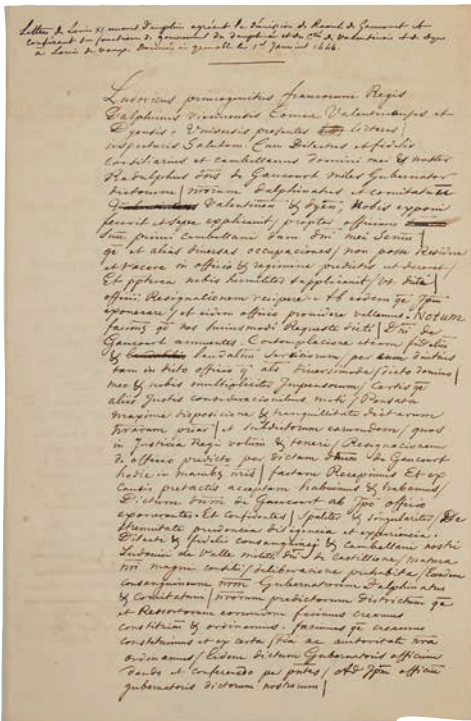 Lettres de Louis XI encore Dauphin agréant la démission de Raoul de Gaucourt et
conférant les fonctions de gouverneur du dauphiné et des Ctés de Valentinois et de Dyois
à Louis de Donnés à grenoble le 1er Janvier 144
Ludovicus primogenitus francorum Regis
Dalphinus Viennensis Comes Valentinensis et
Dyensis Universis presentes litteras
inspecturis Salutem. Cum Dilectus et fidelis
consiliarius et cambellanus domini mei & noster
Radulphus dns de Gaucourt miles Gubernator
dictorum / nrorum Dalphinatus et comitatum
Valentinen & dyen, Nobis exponi
fecerit et sepe explicavit / propter officium
sui primi cambellani dni mei
qe et alias diversas occupaciones / non posse
et vacare in officio & regimine predictis ut deceret /
Et ppterea nobis humiliter supplicavit / ut dicti
officii Resignationem recipere Ab eodem qe ipm
exonerare / et eidem officio providere vellemus. Notum
facimus qe nos huiusmodi Requeste dicti / Dni de
Gaucourt annuentes. Contemplacione eciam fidelium
& laudabilium serviciorum / per eum
tam in dicto officio qe alias diversimode / dicto domino
meo & nobis multipliciter Impensorum / Certis qe
aliis Justis consideracionibus moti / Pensata
maxime disposicione & tranquillitate dictarum
nrarum priar / et subditorum eorumdem / quos
in Justicia Regi volum & teneri / Resignacionem
de officio predicto per dictum dnum de Gaucourt
hodie in manibus nris / factam Recepimus Et ex
causis pretactis acceptam habuimus & habemus /
Dictum dnum de Gaucourt ab ipo officio
exonerantes. Et Confidentes / &
strenuitate prudencia diligencia et experiencia.
Dilecti & fidelis consanguinei & cambellani nostri
Ludovici de Valle militis dni de Castillione / matura
nri magni consilii / deliberacione prehabita / Eundem
consanguineum nrum Gubernatorem Dalphinatus
& Comitatum / nrorum predictorum
et Ressortorum eorumdem facimus creamus
constituim & ordinamus. facimus qe creamus
constituimus et ex certa / ac autoritate nra
ordinamus / Eidem dictum Gubernatoris officium
dando et conferendo per pntes / Ad ipm officium
gubernatoris dictorum nostrorum /